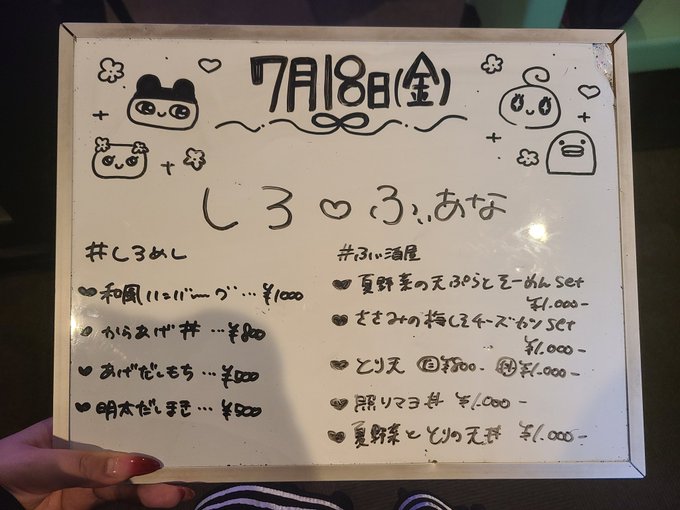 7月18日(金)
しろ♡ふぃあな
#しろめし
♥和風ハンバーグ…¥1000
♥からあげ丼…¥800
♥あげだしもち…¥500
♥明太だしまき…¥500
#ふぃ酒屋
♥夏野菜の天ぷらとそーめんset
¥1.000-
♥ささみの梅しそチーズカツset
¥1.000-
♥とり天 ¥800- ¥1.000-
♥照りマヨ丼 ¥1.000-
♥夏野菜ととりの天丼 ¥1.000-